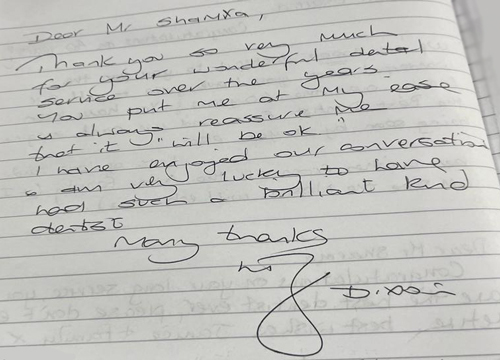 Dear Mr Sharma,
Thank you so very much
for your wonderful dental
service over the years
You put me at my ease
& always reassure me
that it "will be ok"
I have enjoyed our conversation
& am very lucky to have
had such a brilliant kind
dentist
Many thanks
Dixon